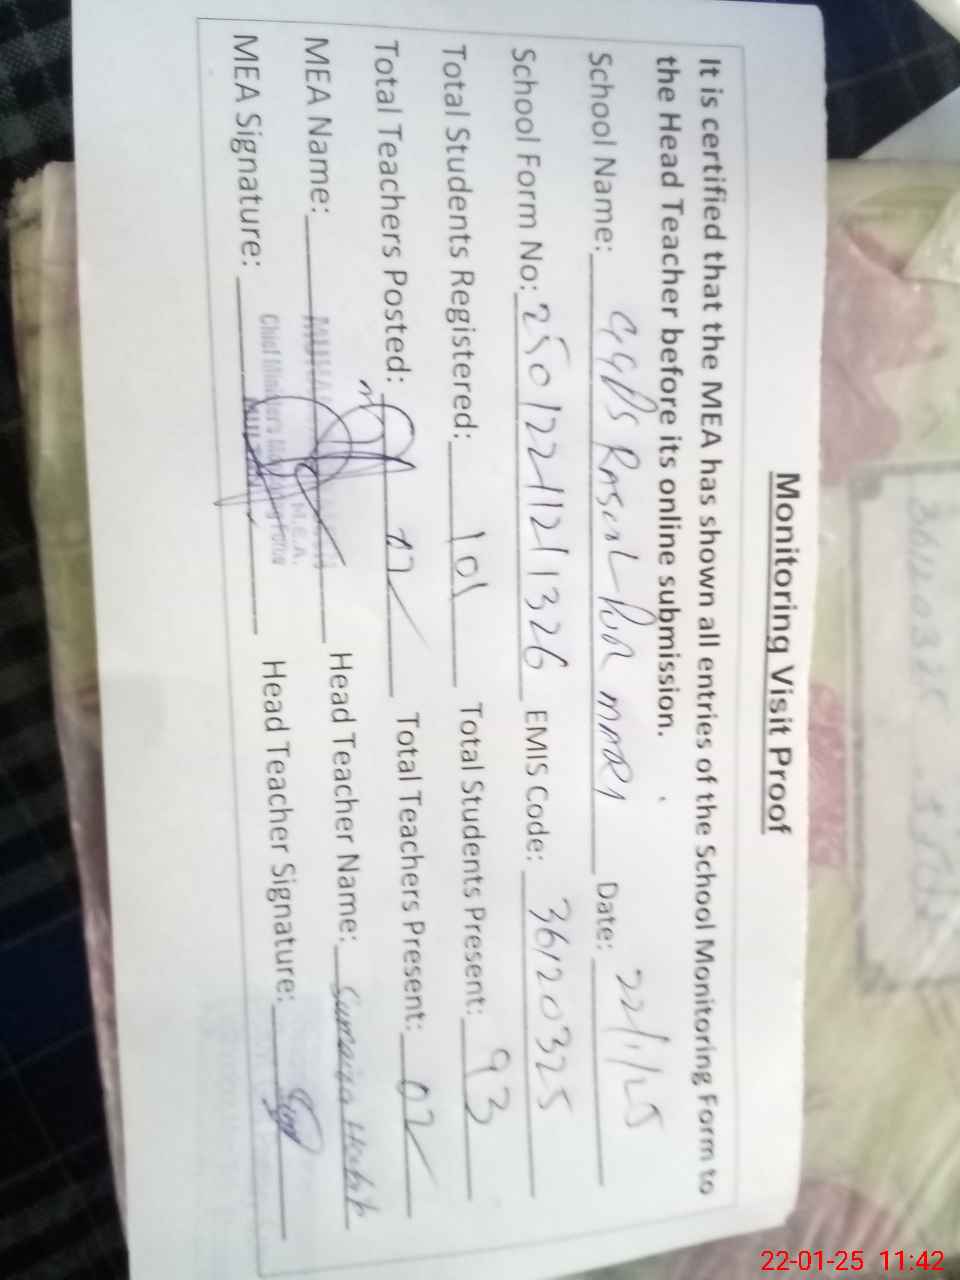 Monitoring Visit Proof
It is certified that the MEA has shown all entries of the School Monitoring Form to
the Head Teacher before its online submission.
School Name: GGPS Rasul Pur MARI Date: 22/1/25
School Form No: 2501221121 1326 EMIS Code: 36120325
Total Students Registered: 101 Total Students Present: 93
Total Teachers Posted: 02 Total Teachers Present: 02
MEA Name: Head Teacher Name: Sumaira
MEA Signature: Head Teacher Signature:
M.E.A.
Chief Minister's
36120325
22-01-25 11:42